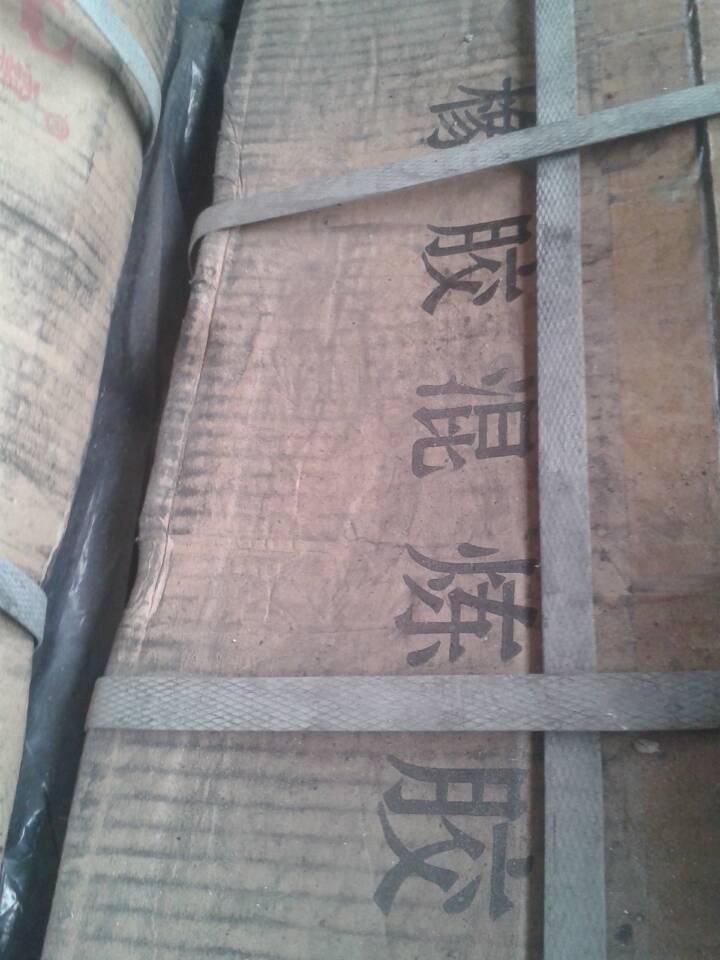 橡胶混炼胶